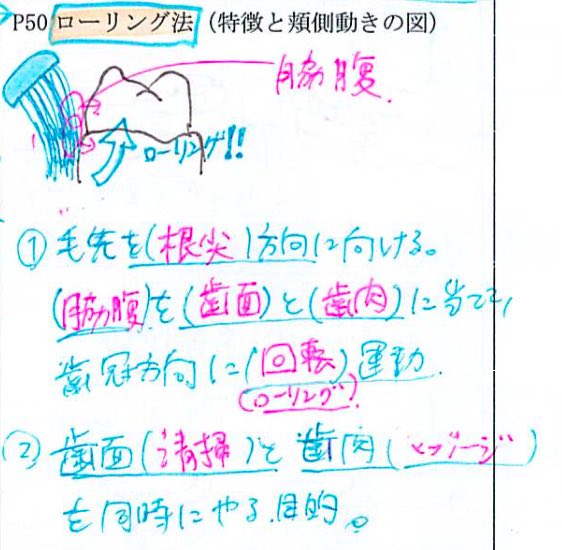 P50 ローリング法 (特徴と頬側動きの図)
脇腹
ローリング!!
① 毛先を(根尖)方向に向ける。
(脇腹)を(歯面)と(歯肉)に当て、
歯冠方向に(回転)運動.
(ローリング)
② 歯面(清掃)と歯肉(マッサージ)
を同時にやる目的。